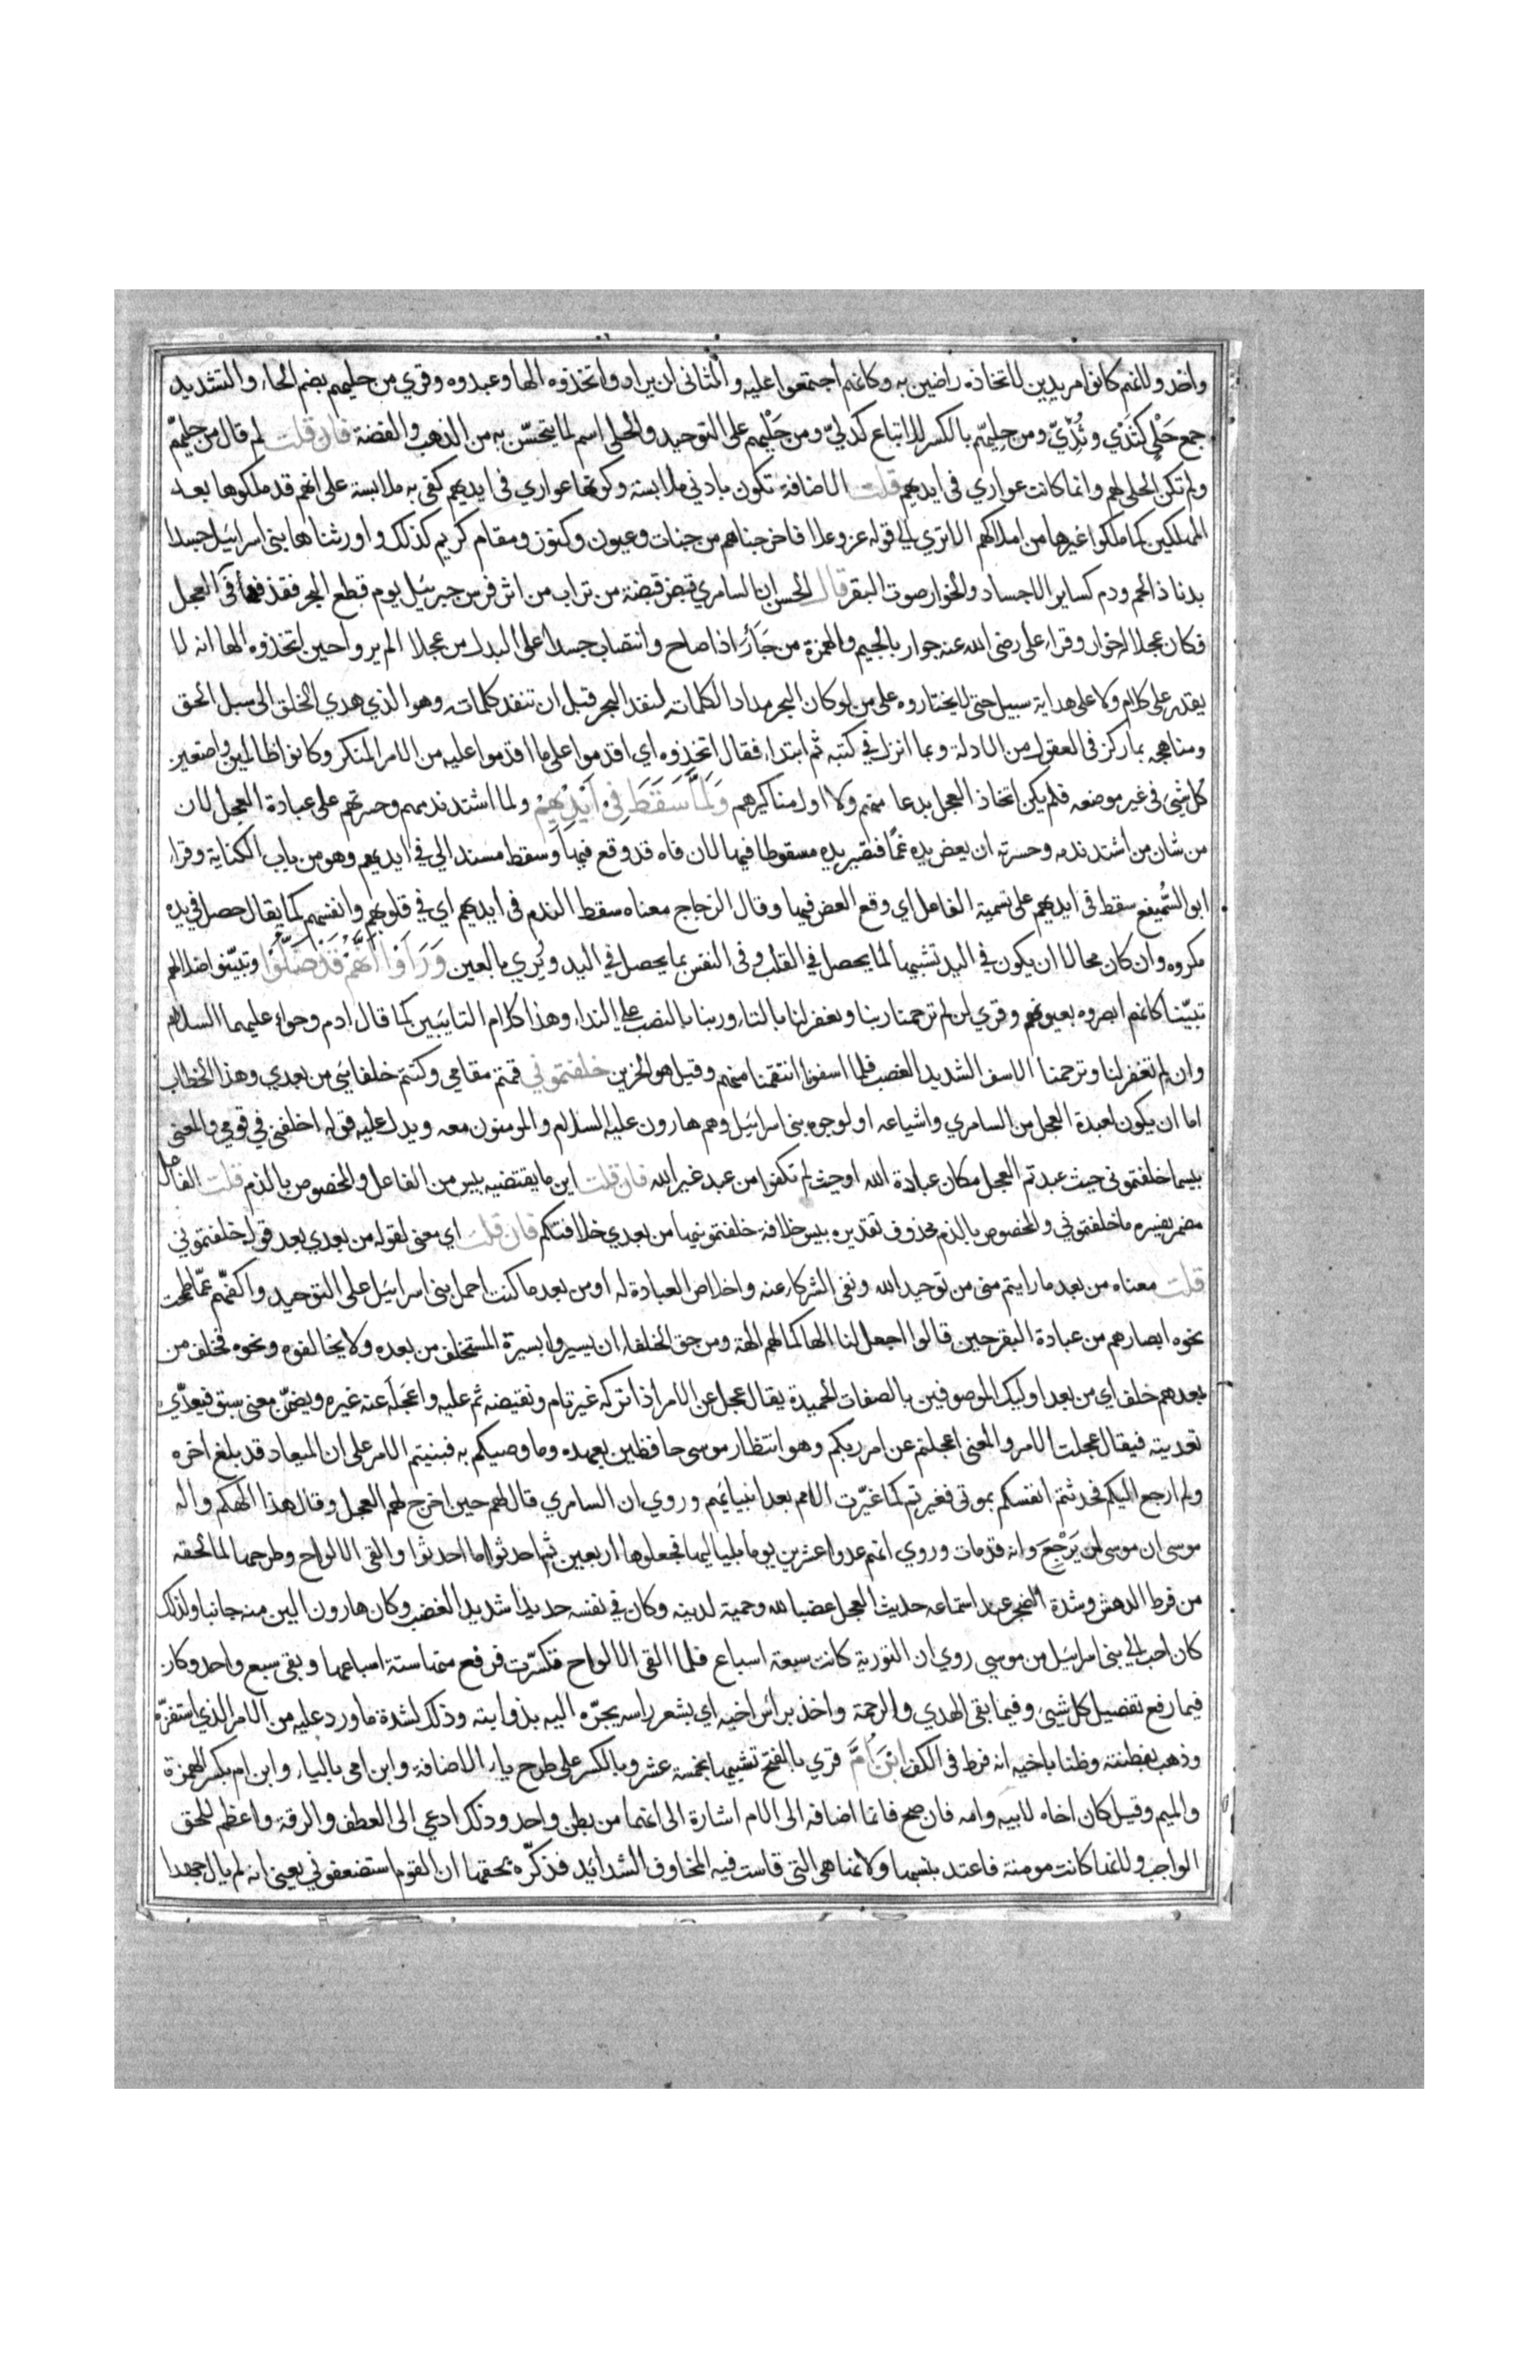 واحد ولانهم كانوا مريدين لاتخاذه راضين به وكانهم اجتمعوا عليه والثاني ان يراد واتخذوه الها وعبدوه وقري من حليهم بضم الحاء والتشديد
جمع حَلْي كثَدْي وثُدِيّ ومن حِليّهم بالكسر للاتباع كدليّ ومن حَلْيهم على التوحيد والحلى اسم لما يتحسّن به من الذهب والفضة فان قلت لم قال من حليهم
ولم تكن الحلى لهم وانما كانت عواري في ايديهم قلت الاضافة تكون بادني ملابسة وكونها عواري في ايديهم كفى به ملابسة على انهم قد ملكوها بعد
المهلكين كما ملكوا غيرها من املاكهم الا تري الى قوله عز وعلا فاخرجناهم من جنات وعيون وكنوز ومقام كريم كذلك واورثناها بني اسرائيل جسدا
بدنا ذا لحم ودم كساير الاجساد والخوار صوت البقر قال الحسن ان السامري قبض قبضة من تراب من اثر فرس جبرئيل يوم قطع البحر فقذفه في العجل
فكان عجلا له خوار وقراء على رضى الله عنه جوار بالجيم والهمزة من جَأَرَ اذا صاح وانتصاب جسدا على البدل من عجلا الم يروا حين اتخذوه الها انه لا
يقدر على كلام ولا على هداية سبيل حتى لا يختاروه على من لو كان البحر مدادا لكلماته لنفد البحر قبل ان تنفد كلماته وهو الذي هدي الخلق الى سبل الحق
ومناهجه بما ركز في العقول من الادلة وبما انزل في كتبه ثم ابتداء فقال اتخذوه اي اقدموا على ما اقدموا عليه من الامر المنكر وكانوا ظالمين واضعين
كل شئ في غير موضعه فلم يكن اتخاذ العجل بدعا منهم ولا اول مناكيرهم وَلَمَّا سَقَطَ فِي أَيْدِيهِمْ ولما اشتد ندمهم وحسرتهم على عبادة العجل لان
من شان من اشتد ندمه وحسرته ان يعض يده غمًا فتصير يده مسقوطا فيها لان فاه قد وقع فيها وسقط مسند الى في ايديهم وهو من باب الكناية وقراء
ابو السُّميفع سقط في ايديهم على تسمية الفاعل اي وقع العض فيها وقال الزجاج معناه سقط الندم في ايديهم اي في قلوبهم وانفسهم كما يقال حصل في يده
مكروه وان كان محالا ان يكون في اليد تشبيها لما يحصل في القلب وفي النفس بما يحصل في اليد ويُري بالعين وَرَأَوْا أَنَّهُمْ قَدْ ضَلُّوا وتبيّنوا ضلالهم
تبيّنا كانهم ابصروه بعيونهم وقري لئن لم ترحمنا ربنا وتغفر لنا بالتاء وربنا بالنصب على النداء وهذا كلام التايبين كما قال ادم وحواء عليهما السلام
وان لم تغفر لنا وترحمنا الاسف الشديد الغضب فلما اسفونا انتقمنا منهم وقيل هو الحزين خلفتموني قمتم مقامي وكنتم خلفائي من بعدي وهذا الخطاب
اما ان يكون لعبدة العجل من السامري واشياعه او لوجوه بني اسرائيل وهم هارون عليه السلام والمومنون معه ويدل عليه قوله اخلفني في قومي والمعنى
بيسما خلفتموني حيث عبدتم العجل مكان عبادة الله او حيث لم تكفوا من عبد غير الله فان قلت اين ما يقتضيه بيس من الفاعل والمخصوص بالذم قلت الفاعل
مضمر يفسره ما خلفتموني والمخصوص بالذم محذوف تقديره بيس خلافة خلفتمونيها من بعدي خلافتكم فان قلت اي معنى لقوله من بعدي بعد قوله خلفتموني
قلت معناه من بعد ما رايتم منى من توحيد الله ونفى الشركاء عنه واخلاص العبادة له او من بعد ما كنت احمل بني اسرائيل على التوحيد واكفّهم عمّا طمحت
نحوه ابصارهم من عبادة البقر حين قالوا اجعل لنا الها كما لهم الهة ومن حق الخلفاء ان يسيروا بسيرة المستخلف من بعده ولا يخالفوه ونحوه فخلف من
بعدهم خلف اي من بعد اوليك الموصوفين بالصفات الحميدة يقال عجل عن الامر اذا تركه غير تام ونقيضه تم عليه واعجَلَه عنه غيره ويضمّن معنى سبق فيعدّي
تعديته فيقال عجلت الامر والمعنى اعجلتم عن امر ربكم وهو انتظار موسى حافظين لعهده وما وصيكم به فبنيتم الامر على ان الميعاد قد بلغ اخره
ولم ارجع اليكم فحدثتم انفسكم بموتي فغيرتم كما غيّرت الامم بعد انبيائهم وروي ان السامري قال لهم حين اخرج لهم العجل وقال هذا الهكم واله
موسى ان موسى لن يَرْجِعَ وانه قد مات وروي انهم عدوا عشرين يوما بلياليها فجعلوها اربعين ثم احدثوا ما احدثوا والقى الالواح وطرحها لما لحقه
من فرط الدهش وشدة الضجر عند استماعه حديث العجل غضبا لله وحمية لدينه وكان في نفسه حديدا شديد الغضب وكان هارون الين منه جانبا ولذلك
كان احب الى بني اسرائيل من موسى روي ان التورية كانت سبعة اسباع فلما القى الالواح فتكسّرت فرفع منها ستة اسباعها وبقى سبع واحد وكان
فيما رفع تفصيل كل شيئ وفيما ابقى الهدي والرحمة واخذ براس اخيه اي بشعر راسه يجرّه اليه بذوابته وذلك لشدة ما ورد عليه من الامر الذي استفزّه
وذهب بفطنته وظنا باخيه انه فرط في الكف ابْنَ أُمَّ قري بالفتح تشبيها بخمسة عشر وبالكسر على طرح ياء الاضافة وابن امى بالياء وابن ام بكسر الهمزة
والميم وقيل كان اخاه لابيه وامه فان صح فانما اضافه الى الام اشارة الى انهما من بطن واحد وذلك ادعي الى العطف والرقة واعظم للحق
الواجب ولانها كانت مومنة فاعتد بنسبها ولانها هي التي قاست فيه المخاوف الشدائد فذكّره بحقها ان القوم استضعفوني يعنى انه لم يال جهدا